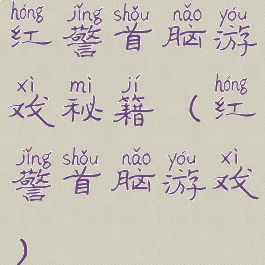 hóng jǐng shǒu nǎo yóu
红警首脑游
xì mì jí hóng
戏秘籍(红
jǐng shǒu nǎo yóu xì
警首脑游戏
)